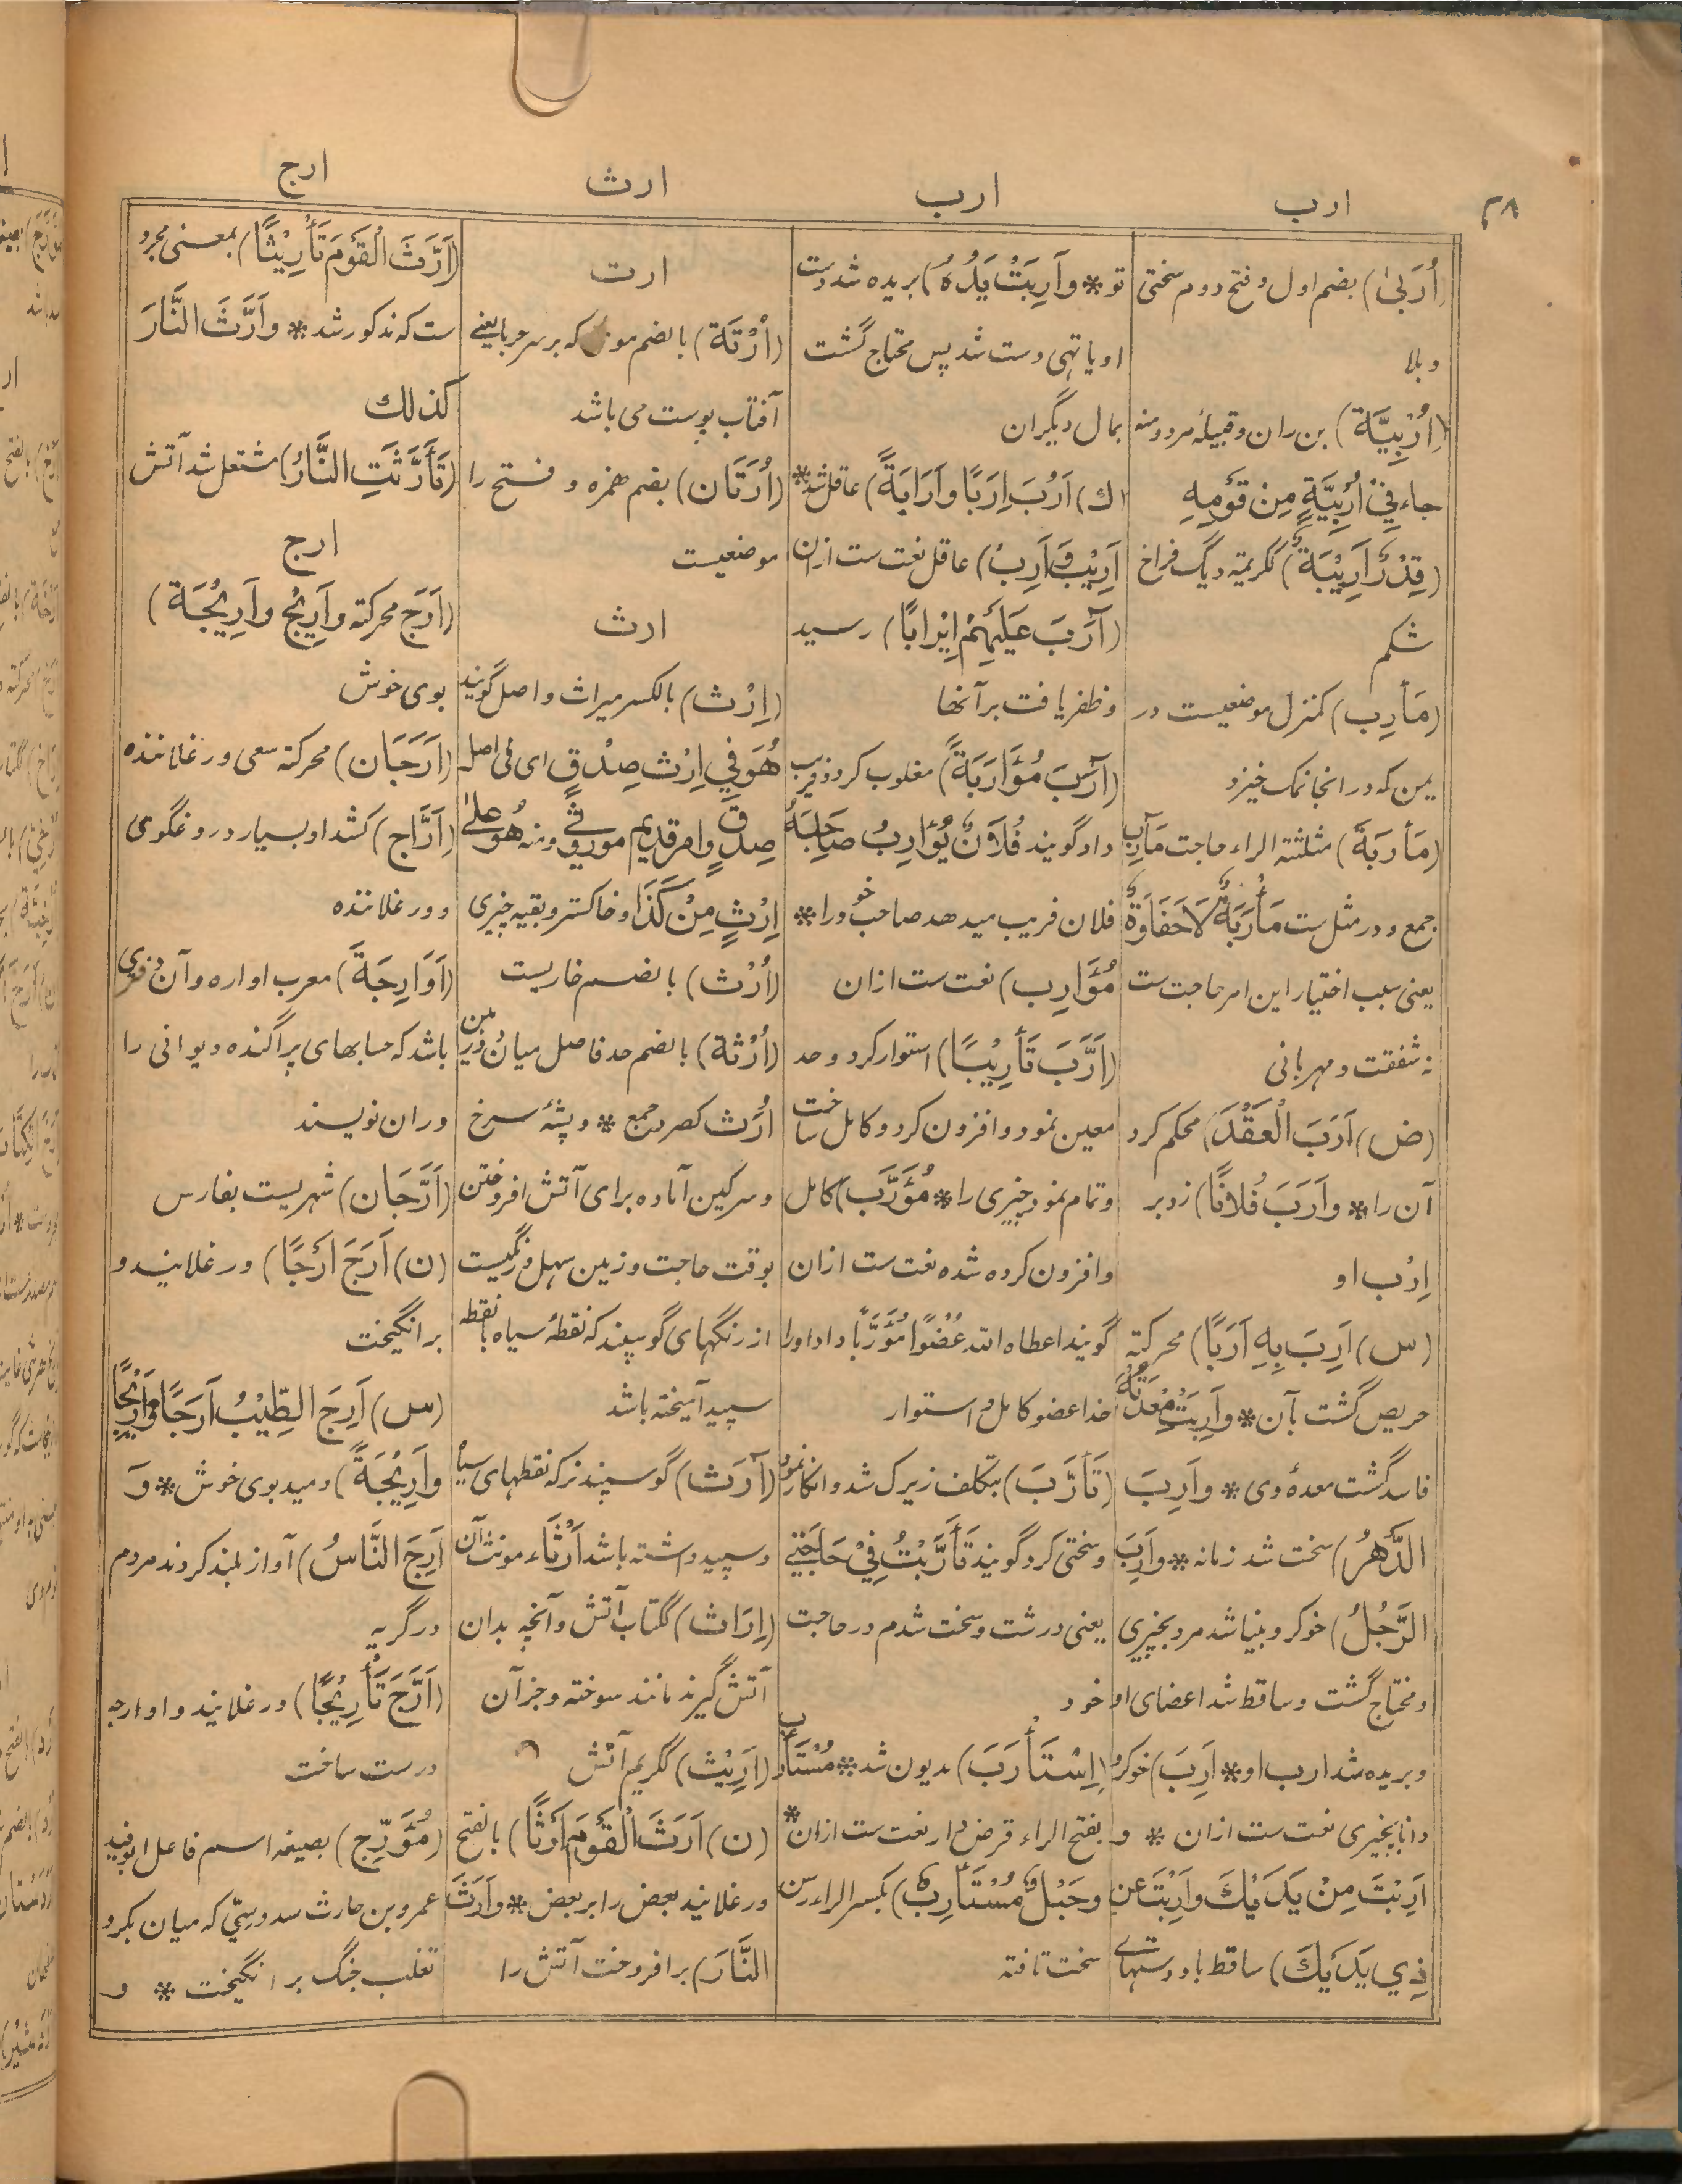 ۳۸
ارب
ارب
ارث
ارج
(أُرَبىٰ) بضم اول وفتح دوم سختی
وبلا
(اُرْبِيَّة) بن ران وقبیلۀ مرد ومنه
جاء فِيْ اُرْبِيَّةٍ مِنْ قَوْمِهِ
(قِدْرٌ اَرِيْبَةٌ) ککریمة دیگ فراخ
شکم
(مَأرِب) کمنزل موضعیست در
یمن که در انجا نمک خیزد
(مَأرَبَة) مثلثة الراء حاجت مَآرِب
جمع و در مثل ست مَأْرَبَةٌ لَا حَفَاوَةٌ
یعنی سبب اختیار این امر حاجت ست
نه شفقت و مهربانی
(ض) اَرَبَ الْعَقْدَ) محکم کرد
آن را * واَرَبَ فُلانًا) زد بر
اِرْب او
(س) اَرِبَ بِهِ اَرَبًا) محرکة
حریص گشت بآن * واَرِبَتْ مَعْدَتُهُ
فاسد گشت معدۀ وی * واَرِبَ
الدَّهْرُ) سخت شد زمانه * واَرِبَ
الرَّجُلُ) خوکر و بینا شد مرد بچیزی
و محتاج گشت و ساقط شد اعضای او
و بریده شد ارب او * اَرِبَ) خوکر و
دانا بچیزی نعت ست ازان * و
اَرِبْتَ مِنْ يَدَيْكَ واَرِبْتَ عن
ذِي يَدَيْكَ) ساقط باد دستهای
تو * واَرِبَتْ يَدُهُ) بریده شد دست
او یا تهی دست شد پس محتاج گشت
بمال دیگران
(ك) اَرُبَ اِرَبًا واَرَابَةً) عاقل شد *
اَرِيْب واَرِبٌ) عاقل نعت ست ازان
(آرَبَ عَلَيْهِمْ اِيْرابًا) رسید
وظفر یافت بر آنها
(آرَبَ مُؤَارَبَةً) مغلوب کرد و فریب
داد گویند فُلَانٌ يُؤارِبُ صَاحِبَهُ
فلان فریب میدهد صاحب خود را *
مُؤَارِب) نعت ست ازان
(اَرَّبَ تَأرِيْبًا) استوار کرد و حد
معین نمود و افزون کرد و کامل ساخت
و تمام نمود چیزی را * مُؤَرَّب) کامل
و افزون کرده شده نعت ست ازان
گویند اعطاه الله عُضْوًا مُؤَرَّبًا داد او را
خدا عضو کامل و استوار
(تَأَرَّبَ) بتکلف زیرک شد و انکار نمود
و سختی کرد گویند تَأَرَّبْتُ فِيْ حَاجَتِيْ
یعنی درشت و سخت شدم در حاجت
خود
(اِسْتَأرَبَ) مدیون شد * مُسْتَأرَب
بفتح الراء قرض دار نعت ست ازان *
وحَبْلٌ مُسْتَأرِبٌ) بکسر الراء رسن
سخت تافته
ارت
(اُرْتَة) بالضم که بر سر حربا یعنے
آفتاب پرست می باشد
(اُرَتَان) بضم همزه و فتح را
موضعیست
ارث
(اِرْث) بالکسر میراث و اصل گویند
هُوَ فِي اِرْث صِدْقٍ ای فی اصل
صِدْقٍ وامر قدیم موروث ومنه هُوَ علیٰ
اِرْثٍ مِنْ كَذَا و خاکستر و بقیه چیزی
(اُرْث) بالضم خاریست
(اُرْثَة) بالضم حد فاصل میان زمین
اُرَث کصرد جمع * و پشۀ سرخ
و سرکین آماده برای آتش افروختن
بوقت حاجت و زمین سهل و رنگیست
از رنگهای گوسپند که نقطۀ سیاه با نقطۀ
سپید آمیخته باشد
(آرَث) گوسپند نر که نقطهای سیاه
و سپید داشته باشد اَرْثَاء مونث آن
(اِرَاث) ککتاب آتش و آنچه بدان
آتش گیرند مانند سوخته و جز آن
(اَرِيْث) ککریم آتش
(ن) اَرَثَ الْقَوْمَ اَرْثًا) بالفتح
ورغلانید بعض را بر بعض * واَرَثَ
النَّارَ) برافروخت آتش را
(اَرَّثَ الْقَوْمَ تَأْرِيْثًا) بمعنی مجرد
ست که مذکور شد * واَرَّثَ النَّارَ
کذلك
(تَأَرَّثَتِ النَّارُ) مشتعل شد آتش
ارج
(اَرَج محرکة واَرِيْج واَرِيْجَة)
بوی خوش
(اَرَجَان) محرکة سعی ورغلاننده
(اَرَّاج) کشداد بسیار دروغگوی
و ورغلاننده
(اَوَارِجَة) معرب اواره و آن دفتری
باشد که حسابهای پراگنده دیوانی را
دران نویسند
(اَرَّجَان) شهریست بفارس
(ن) اَرَجَ اَرْجًا) ورغلانید و
برانگیخت
(س) اَرِجَ الطِّيْبُ اَرَجًا واَرِيْجًا
واَرِيْجَةً) دمید بوی خوش * وَ
اَرِجَ النَّاسُ) آواز بلند کردند مردم
در گریه
(اَرَّجَ تَأْرِيْجًا) ورغلانید و اوارجه
درست ساخت
(مُؤَرِّج) بصیغه اسم فاعل ابو فید
عمرو بن حارث سدوسیّ که میان بکر و
تغلب جنگ برانگیخت * و